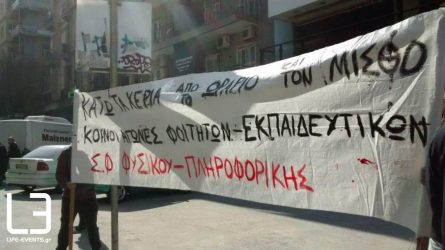 ΚΑΤΩ ΤΑ ΧΕΡΙΑ ΑΠΟ ΤΟ ΩΡΑΡΙΟ ΚΑΙ ΤΟΝ ΜΙΣΘΟ
ΚΟΙΝΟΙ ΑΓΩΝΕΣ ΦΟΙΤΗΤΩΝ-ΕΚΠΑΙΔΕΥΤΙΚΩΝ
Σ.Φ ΦΥΣΙΚΟΥ-ΠΛΗΡΟΦΟΡΙΚΗΣ
LIFE-EVENTS.gr